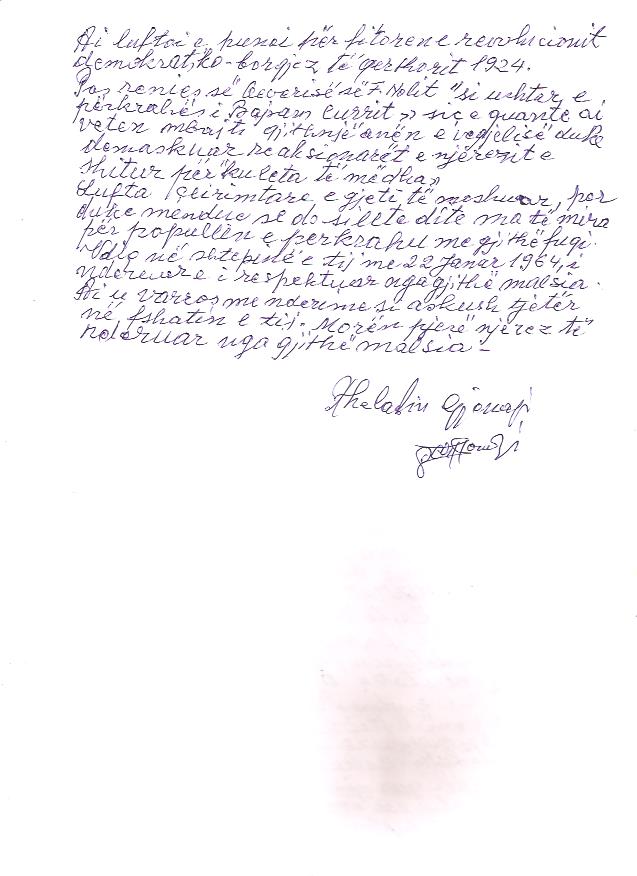 Ai luftoi e punoi për fitoren e revolucionit
demokratiko-borgjez të qershorit 1924.
Pas renies së Qeverisë së F. Nolit "si ushtar e
përkrahës i Bajram Currit" siç e quante ai
veten mbajti gjithnjë anën e vegjëlisë duke
demaskuar reaksionarët e njerëzit e
shitur për kuleta të mëdha,
Lufta Çlirimtare e gjeti të moshuar, por
duke mendue se do sillte ditë ma të mira
për popullën e perkrahu me gjithë fuqi.
Vdiq në shtepinë e tij me 22 Janar 1964, i
nderuare i respektuar nga gjithë malsia.
Ai u varros me nderime si askush tjetër
në fshatin e tij. Morën pjesë njerez të
nderuar nga gjithë malsia -
Xheladin Gjonaj